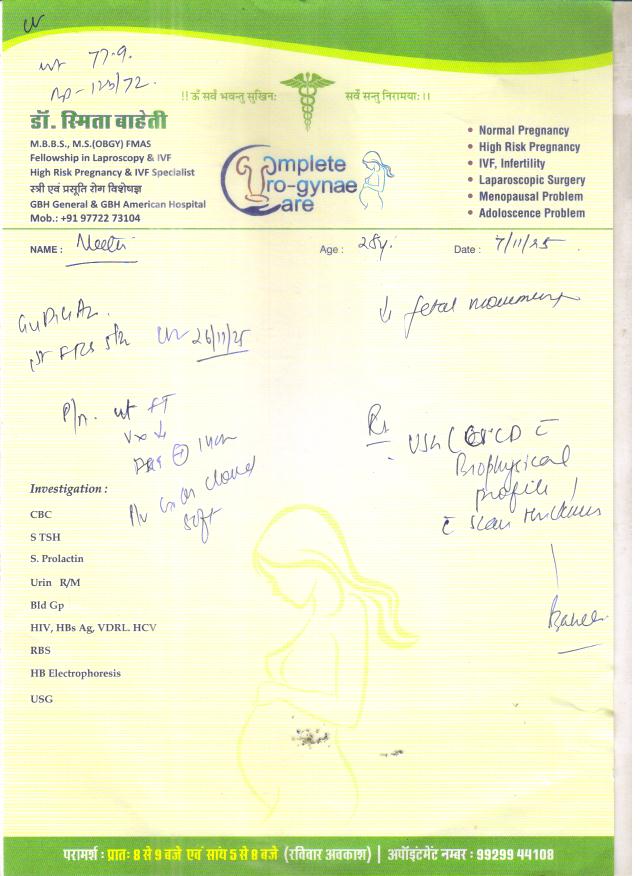 wt 77.9.
BP - 123/72.
!! ॐ सर्वे भवन्तु सुखिनः सर्वे सन्तु निरामयाः।।
डॉ. स्मिता बाहेती
M.B.B.S., M.S.(OBGY) FMAS
Fellowship in Laproscopy & IVF
High Risk Pregnancy & IVF Specialist
स्त्री एवं प्रसूति रोग विशेषज्ञ
GBH General & GBH American Hospital
Mob.: +91 97722 73104
Complete
Uro-gynae
Care
• Normal Pregnancy
• High Risk Pregnancy
• IVF, Infertility
• Laparoscopic Surgery
• Menopausal Problem
• Adoloscence Problem
NAME : Age : 28y. Date : 7/11/25
↓ fetal movement
26/11/25
P/A. ut FT
Vx ↓
P/V Cx os closed
soft
Rx
USG (
Biophysical
profile )
c̄ scar thickness
Investigation :
CBC
S TSH
S. Prolactin
Urin R/M
Bld Gp
HIV, HBs Ag, VDRL. HCV
RBS
HB Electrophoresis
USG
परामर्श : प्रातः 8 से 9 बजे एवं सांय 5 से 8 बजे (रविवार अवकाश) | अपॉइंटमेंट नम्बर : 99299 44108